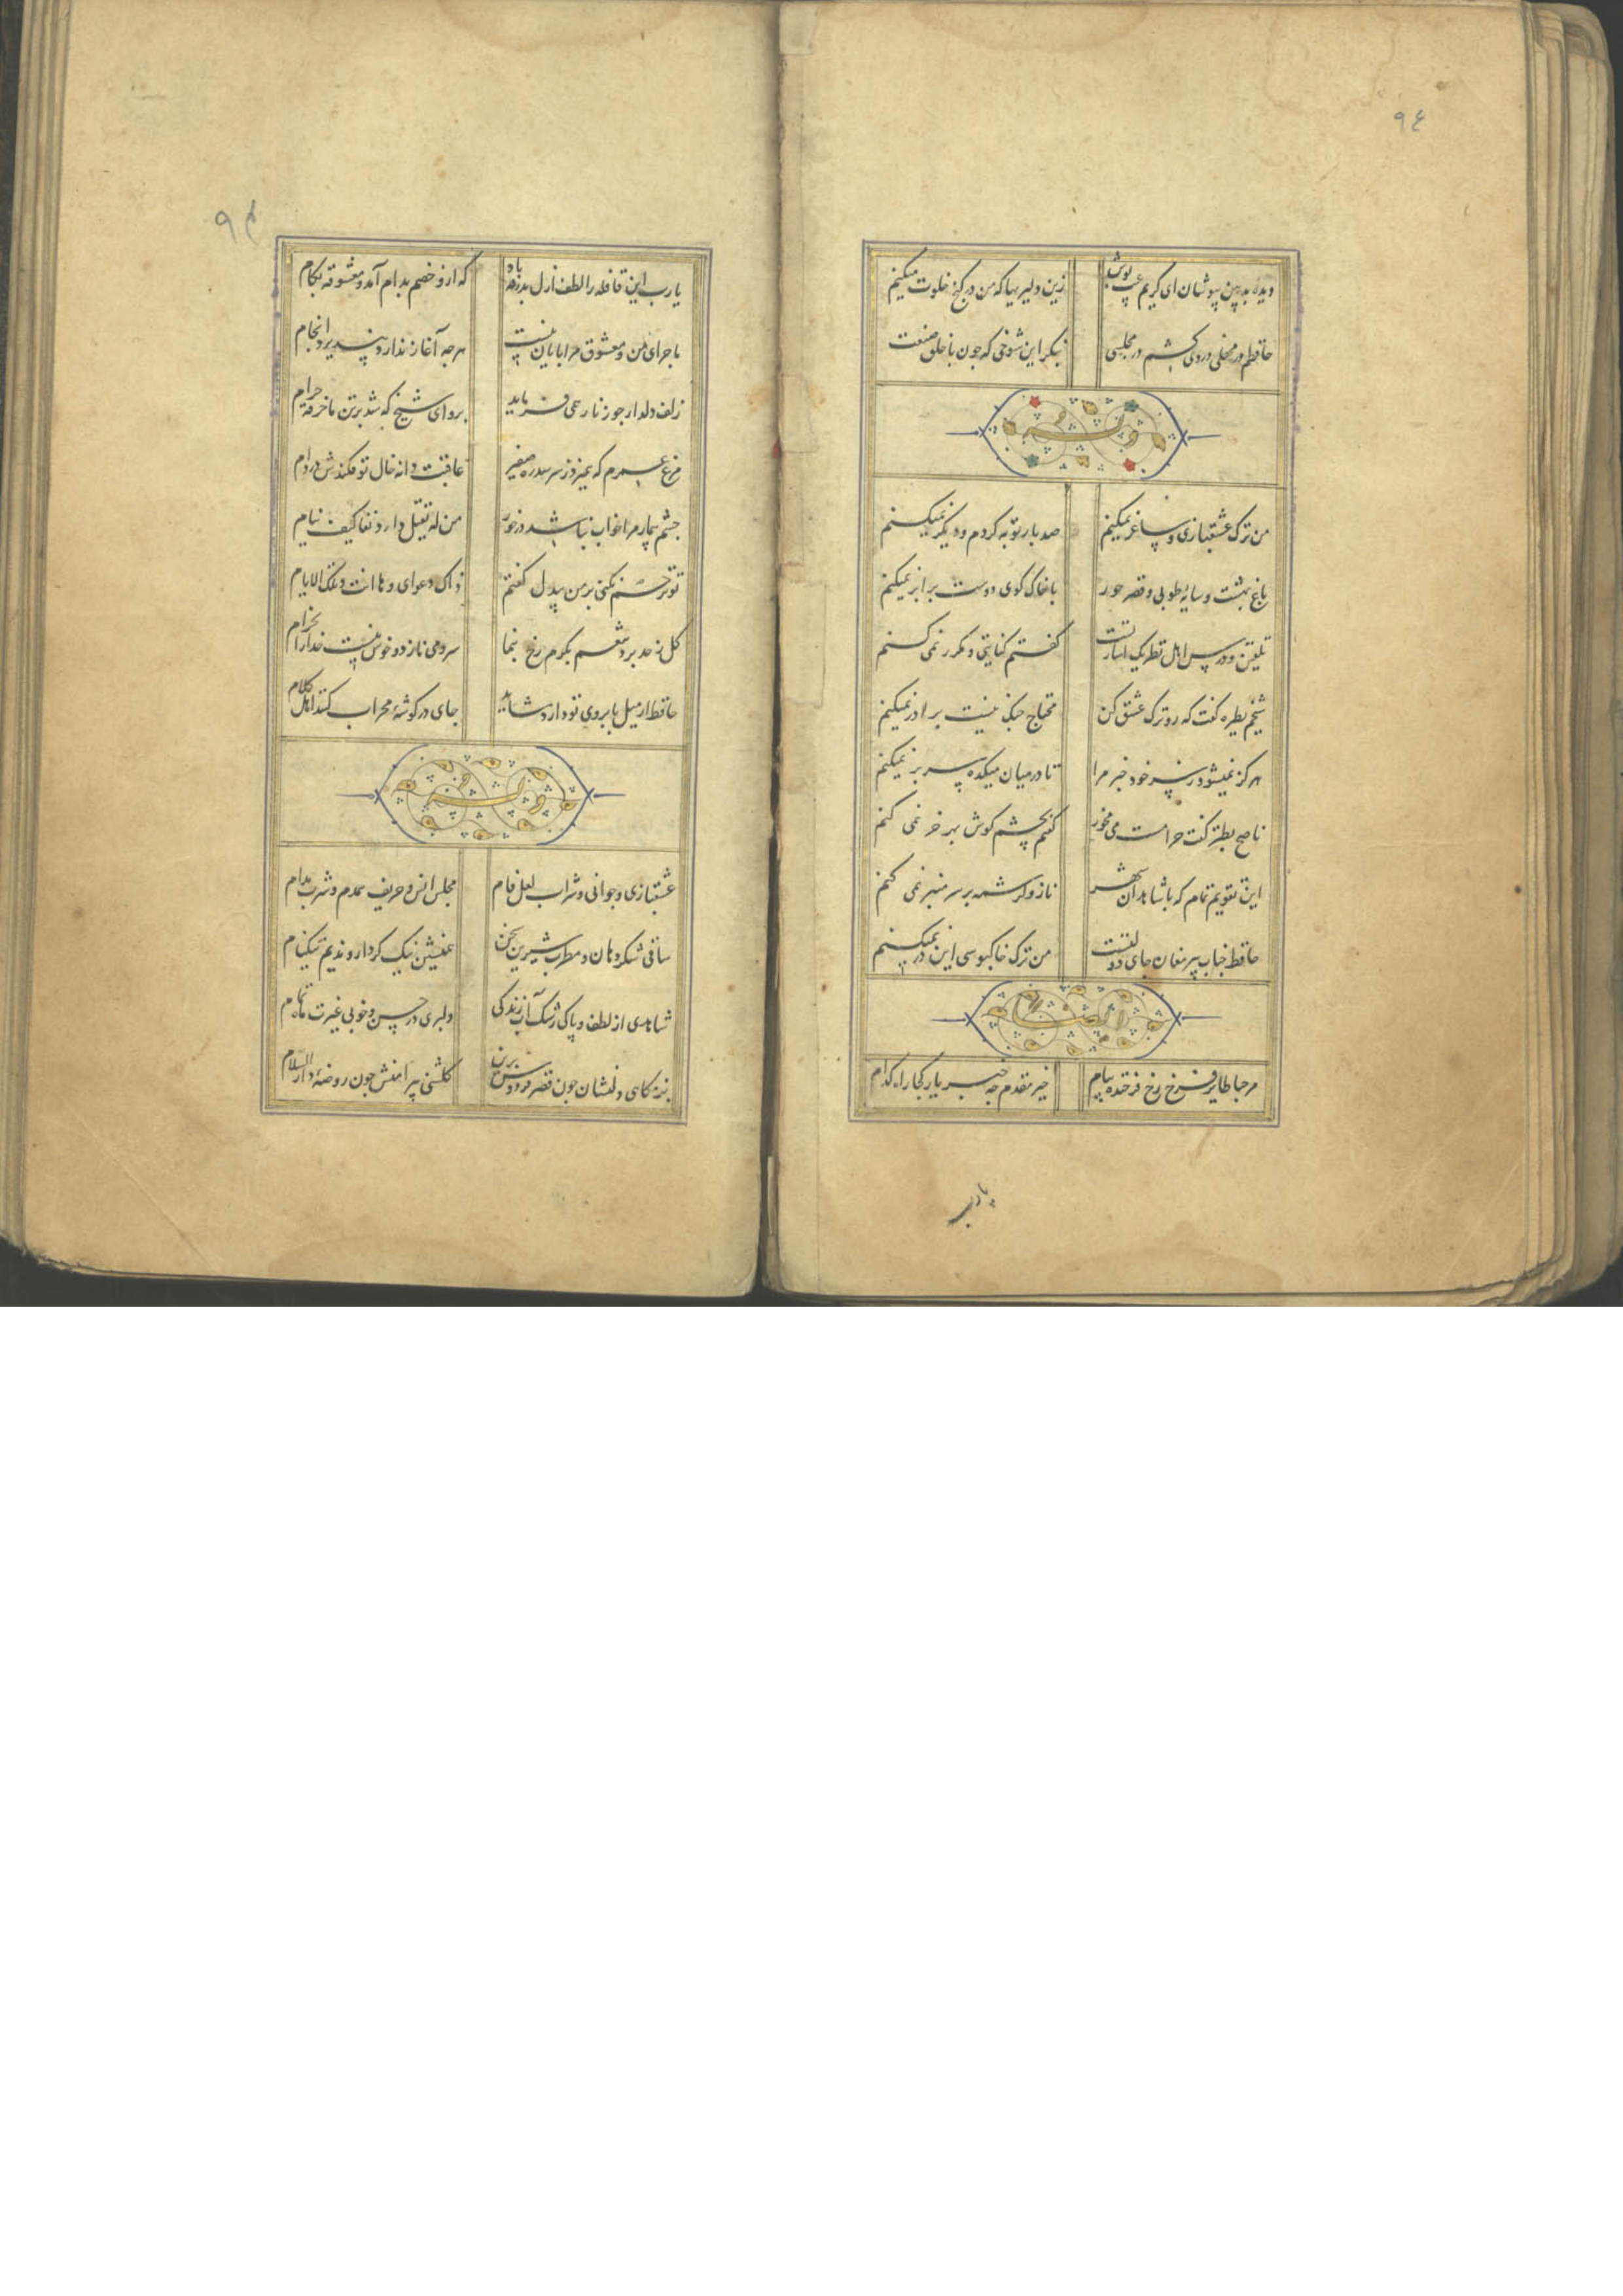 ٩٤
دیدهٔ بدبین بپوشان ای کریم عیب پوش
زین دلیریها که من در کنج خلوت میکنم
حافظم در محفلی دردی کشم در مجلسی
بنکر این شوخی که جون با خلق صنعت
وله
من ترک عشقبازی و ساغر نمیکنم
صد بار توبه کردم و دیکر نمیکنم
باغ بهشت و سایهٔ طوبی و قصر حور
با خاک کوی دوست برابر نمیکنم
تلقین و درس اهل نظر یک اشارتست
کفتم کنایتی و مکرر نمی کنم
شیخم بطیره کفت که رو ترک عشق کن
محتاج جنک نیست برادر نمیکنم
هرکز نمیشود ز سر خود خبر مرا
تا در میان میکده سر بر نمیکنم
ناصح بطنز کفت حرامست می مخور
کفتم بچشم کوش بهر خر نمی کنم
این تقویم تمام که با شاهدان شهر
ناز و کرشمه بر سر منبر نمی کنم
حافظ جناب پیر مغان جای دولتست
من ترک خاکبوسی این در نمیکنم
ایضا
مرحبا طایر فرخ رخ فرخنده پیام
خیر مقدم جه خبر یار کجا راه کدام
یارب
٩٥
یارب این قافله را لطف ازل بدرقه باد
که ازو خصم بدام آمد و معشوقه بکام
ماجرای من و معشوق مرا پایان نیست
هرجه آغاز ندارد نپذیرد انجام
زلف دلدار جو زنار همی فرماید
برو ای شیخ که شد بر تن ما خرقه حرام
مرغ که میزد ز سر سدره صفیر
عاقبت دانه خال تو فکندش در دام
جشم بیمار مرا خواب نباشد درخور
من له یقتل داء دنفا کیف ینام
تو ترحم نکنی بر من بیدل کفتم
ذاک دعوای وها انت وتلک الایام
کل ز حد برد تنعم بکرم رخ بنما
سرو می نازد و خوش نیست خدا را بخرام
حافظ ار میل بابروی تو دارد شاید
جای در کوشهٔ محراب کنند اهل کلام
وله
عشقبازی و جوانی و شراب لعل فام
مجلس انس و حریف همدم و شرب مدام
ساقی شکردهان و مطرب شیرین سخن
همنشین نیک کردار و ندیم نیکنام
شاهدی از لطف و پاکی رشک آب زندکی
دلبری در حسن و خوبی غیرت ماه تمام
بزمکاهی دلنشان جون قصر فردوس برین
کلشنی پیرامنش جون روضهٔ دارالسلام